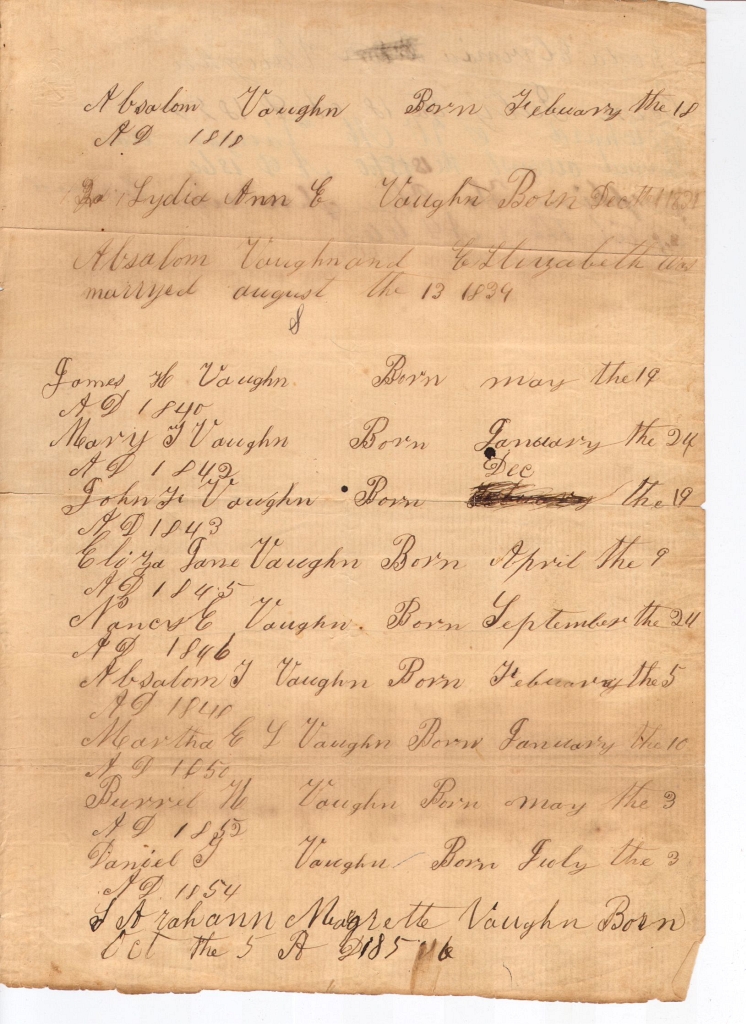 Absalom Vaughn Born Febuary the 18
AD 1818
Lydia Ann E Vaughn Born Dec
Absalom Vaughn and E Elizabeth was
marryed august the 13 1839
8
James H Vaughn Born may the 19
AD 1840
Mary J Vaughn Born January the 24
AD 1842
Dec
John F Vaughn Born the 19
AD 1843
Eliza Jane Vaughn Born April the 9
AD 1845
Nancy E Vaughn Born September the 24
AD 1846
Absalom J Vaughn Born Febuary the 5
AD 1848
Martha E L Vaughn Born January the 10
AD 1850
Burrel H Vaughn Born may the 3
AD 1852
Daniel J Vaughn Born July the 3
AD 1854
SArahann Magrette Vaughn Born
Oct the 5 A D 185 6